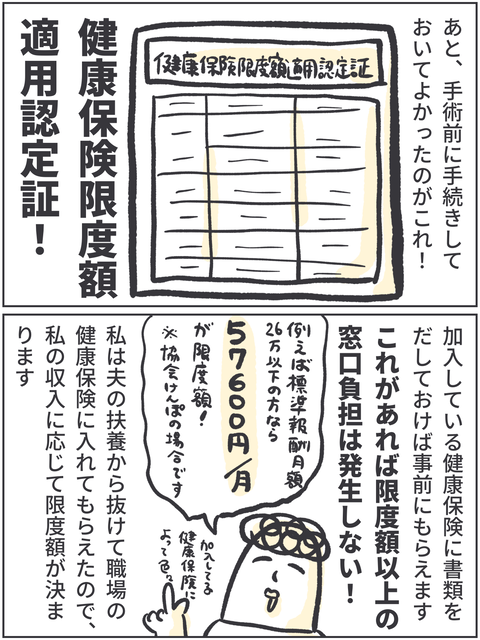 あと、手術前に手続きして
おいてよかったのがこれ！
健康保険限度額適用認定証
健康保険限度額
適用認定証！
加入している健康保険に書類を
だしておけば事前にもらえます
これがあれば限度額以上の
窓口負担は発生しない！
例えば標準報酬月額
26万以下の方なら
57600円/月
が限度額！
※協会けんぽの場合です
加入してる
健康保険に
よって色々
私は夫の扶養から抜けて職場の
健康保険に入れてもらえたので、
私の収入に応じて限度額が決ま
ります